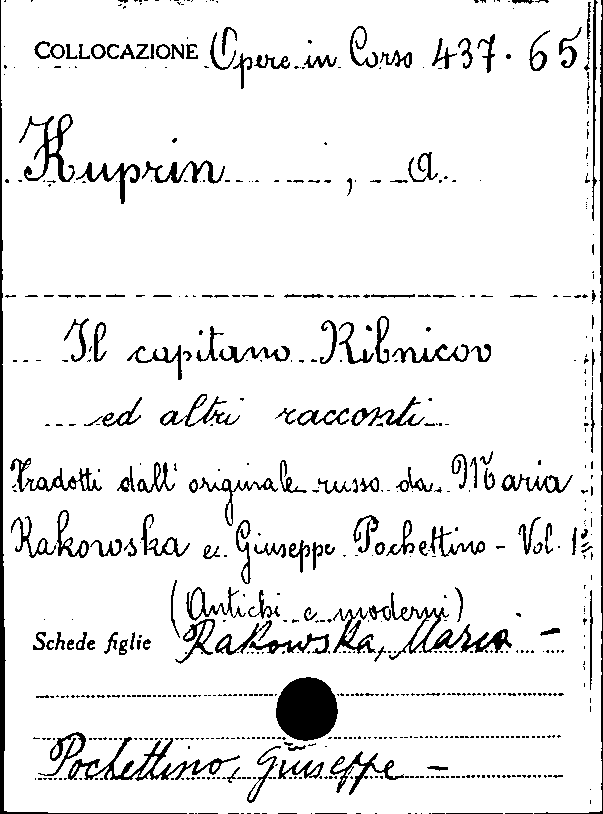 COLLOCAZIONE Opere in Corso 437.65
Kuprin, A.
Il capitano Ribnicov
ed altri racconti
Tradotti dall'originale russo da Maria
Rakowska e Giuseppe Pochettino - Vol. 1º
(Antichi e moderni)
Schede figlie Rakowska, Maria -
Pochettino, Giuseppe -